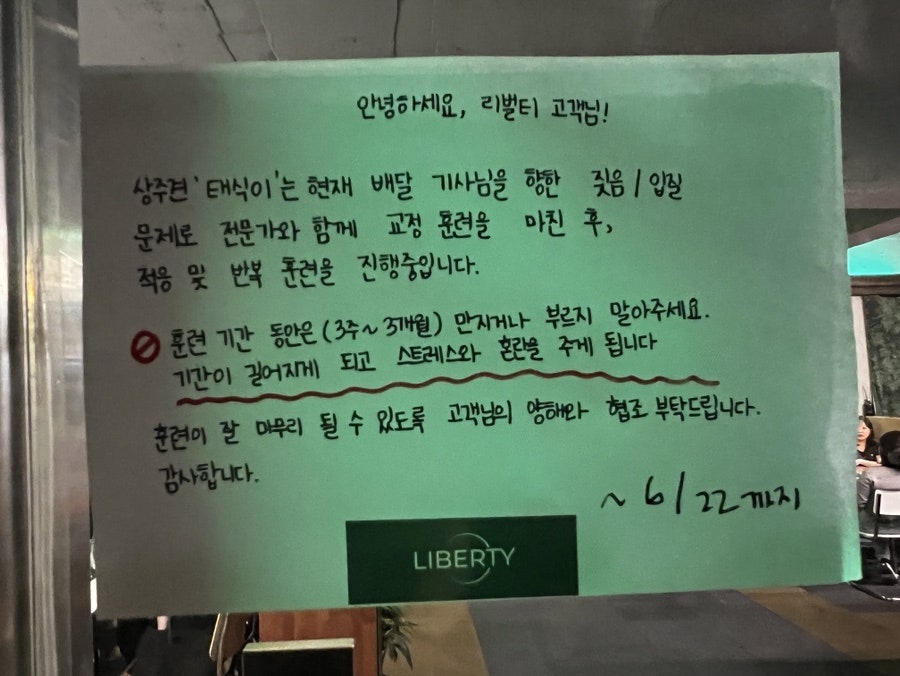 안녕하세요, 리벌티 고객님!
상주견 '태식이'는 현재 배달 기사님을 향한 짖음 / 입질
문제로 전문가와 함께 교정 훈련을 마친 후,
적응 및 반복 훈련을 진행중입니다.
훈련 기간 동안은 (3주~3개월) 만지거나 부르지 말아주세요.
기간이 길어지게 되고 스트레스와 혼란을 주게 됩니다
훈련이 잘 마무리 될 수 있도록 고객님의 양해와 협조 부탁드립니다.
감사합니다.
~ 6/22까지
LIBERTY